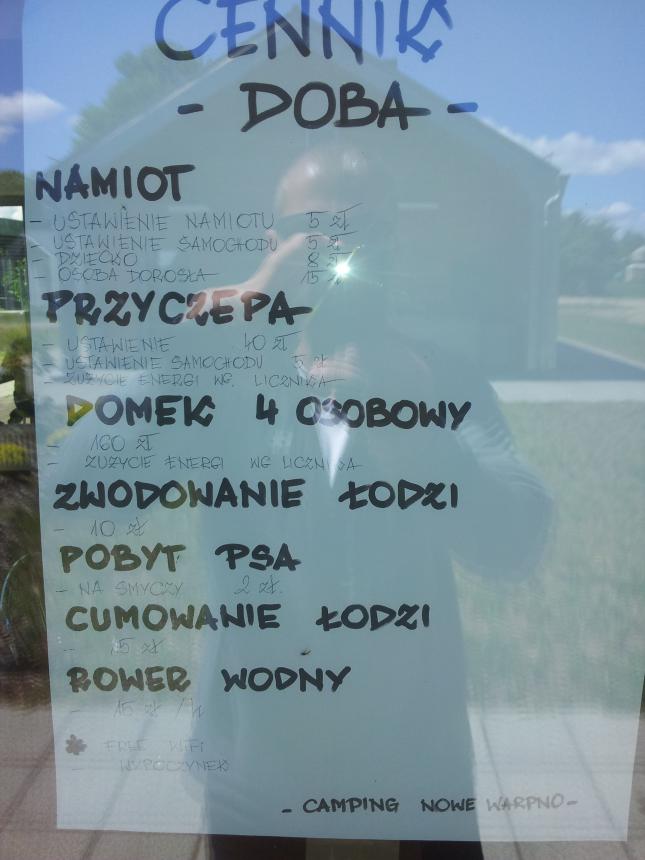 CENNIK
- DOBA -
NAMIOT
- USTAWIENIE NAMIOTU 5 zł
- USTAWIENIE SAMOCHODU 5 zł
- DZIECKO 8 zł
- OSOBA DOROSŁA 15 zł
PRZYCZEPA
- USTAWIENIE 40 zł
- USTAWIENIE SAMOCHODU 5 zł
- ZUŻYCIE ENERGI WG. LICZNIKA
DOMEK 4 OSOBOWY
- 160 zł
- ZUŻYCIE ENERGI WG LICZNIKA
ZWODOWANIE ŁODZI
- 10 zł
POBYT PSA
- NA SMYCZY 2 zł.
CUMOWANIE ŁODZI
- 15 zł
ROWER WODNY
- 15 zł /h
* FREE WIFI
- WYPOCZYNEK
- CAMPING NOWE WARPNO -